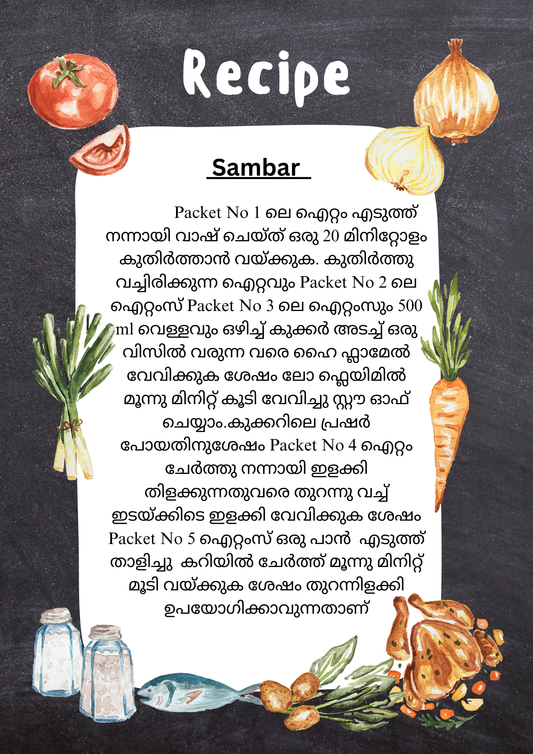 Recipe
Sambar
Packet No 1 ലെ ഐറ്റം എടുത്ത്
നന്നായി വാഷ് ചെയ്ത് ഒരു 20 മിനിറ്റോളം
കുതിർത്താൻ വയ്ക്കുക. കുതിർത്തു
വച്ചിരിക്കുന്ന ഐറ്റവും Packet No 2 ലെ
ഐറ്റംസ് Packet No 3 ലെ ഐറ്റംസും 500
ml വെള്ളവും ഒഴിച്ച് കുക്കർ അടച്ച് ഒരു
വിസിൽ വരുന്ന വരെ ഹൈ ഫ്ലാമേൽ
വേവിക്കുക ശേഷം ലോ ഫ്ലെയിമിൽ
മൂന്നു മിനിറ്റ് കൂടി വേവിച്ചു സ്റ്റൗ ഓഫ്
ചെയ്യാം.കുക്കറിലെ പ്രഷർ
പോയതിനുശേഷം Packet No 4 ഐറ്റം
ചേർത്തു നന്നായി ഇളക്കി
തിളക്കുന്നതുവരെ തുറന്നു വച്ച്
ഇടയ്ക്കിടെ ഇളക്കി വേവിക്കുക ശേഷം
Packet No 5 ഐറ്റംസ് ഒരു പാൻ എടുത്ത്
താളിച്ചു കറിയിൽ ചേർത്ത് മൂന്നു മിനിറ്റ്
മൂടി വയ്ക്കുക ശേഷം തുറന്നിളക്കി
ഉപയോഗിക്കാവുന്നതാണ്